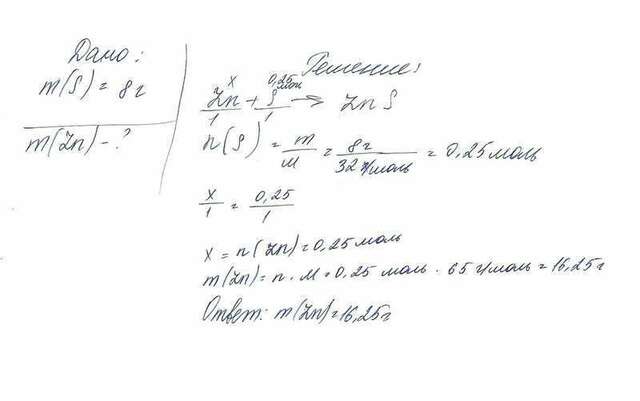 Дано:
m(S) = 8 г
m(Zn) - ?
Решение:
x 0,25 моль
Zn + S → ZnS
1 1
n(S) = m/M = 8 г/32 г/моль = 0,25 моль
x/1 = 0,25/1
x = n(Zn) = 0,25 моль
m(Zn) = n · M = 0,25 моль · 65 г/моль = 16,25 г
Ответ: m(Zn) = 16,25 г